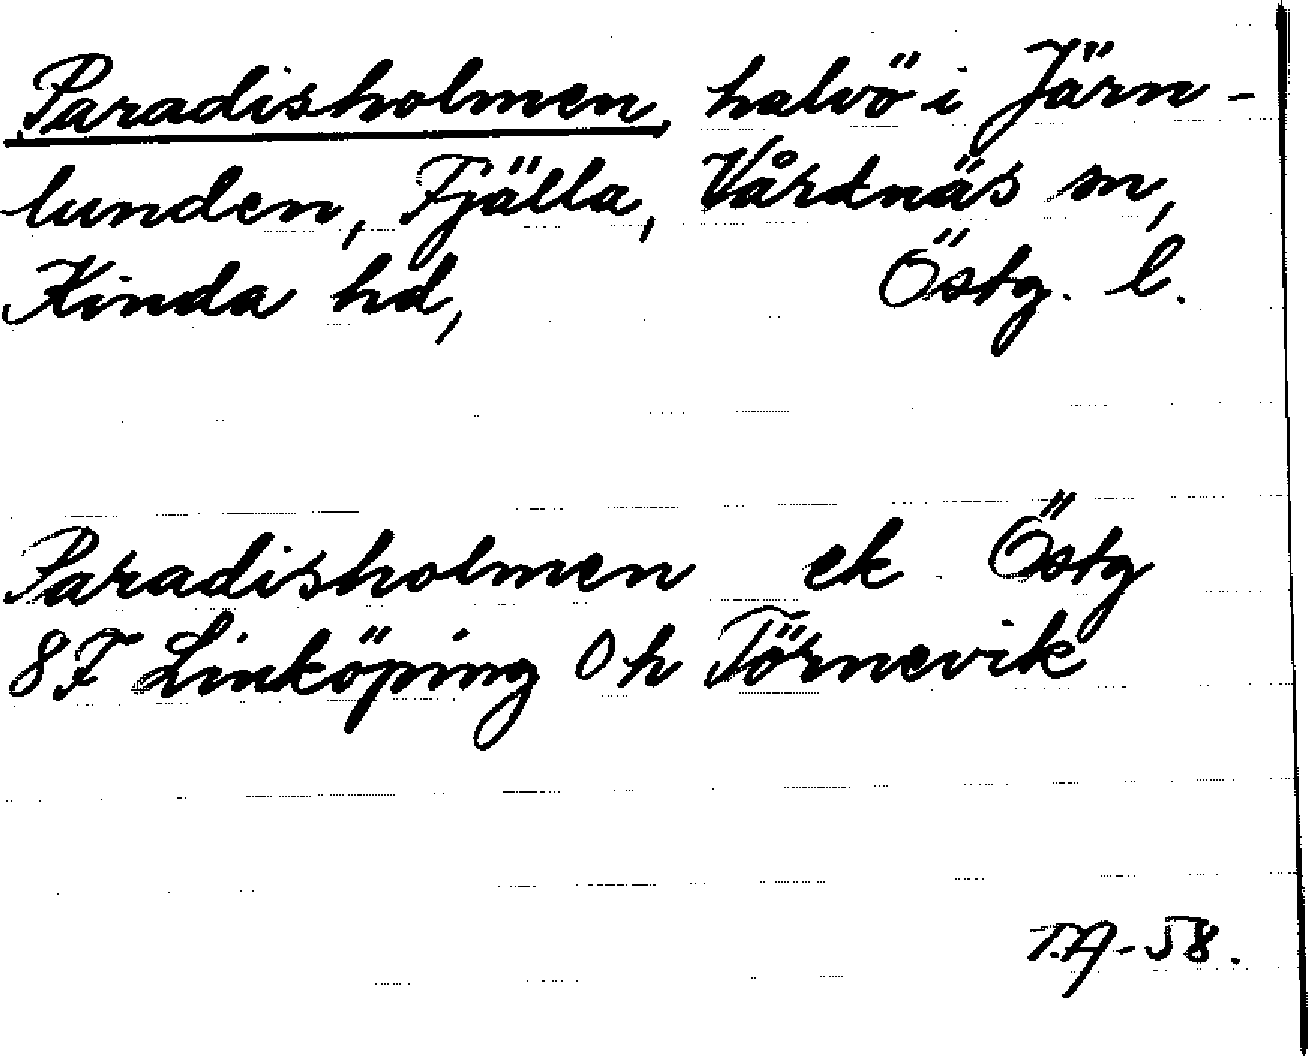 Paradisholmen, halvö i Järn-
lunden, Fjälla, Vårdnäs sn,
Kinda hd, Östg. l.
Paradisholmen ek Östg
8F Linköping 0 h Törnevik
T.A-58.